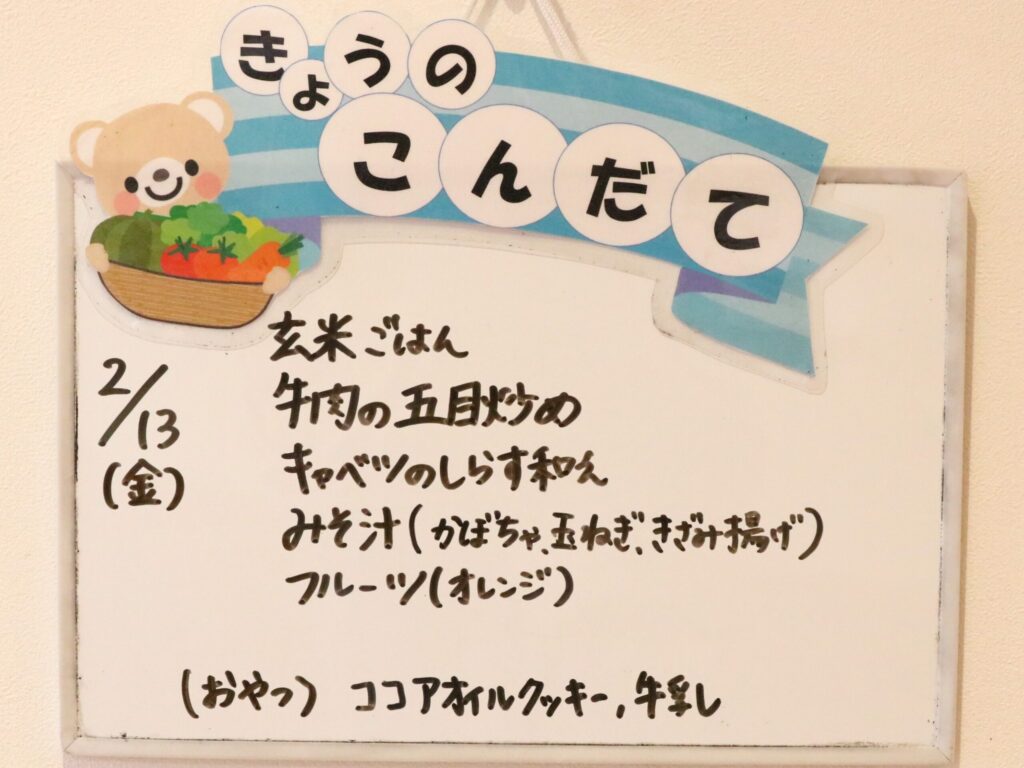 きょうの
こんだて
2/13
(金)
玄米ごはん
牛肉の五目炒め
キャベツのしらす和え
みそ汁(かぼちゃ、玉ねぎ、きざみ揚げ)
フルーツ(オレンジ)
(おやつ) ココアオイルクッキー,牛乳